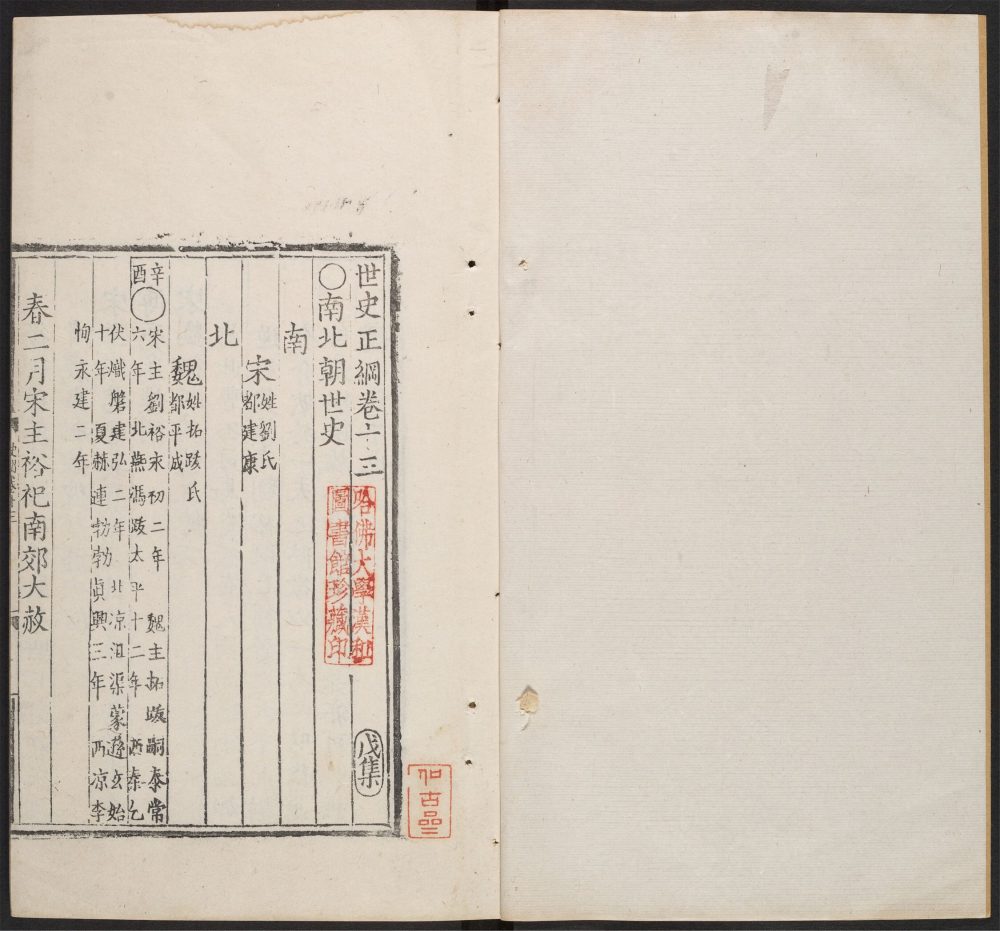 世史正綱卷十三
戊集
○南北朝世史
南
宋 姓劉氏
都建康
北
魏 姓拓跋氏
都平成
辛酉
○宋主劉裕永初二年 魏主拓跋嗣泰常
六年 北燕馮跋太平十二年 西秦乞
伏熾磐建弘二年 北凉沮渠蒙遜玄始
十年 夏赫連勃勃真興三年 西凉李
恂永建二年
春二月宋主裕祀南郊大赦
哈佛大學漢和
圖書館珍藏印